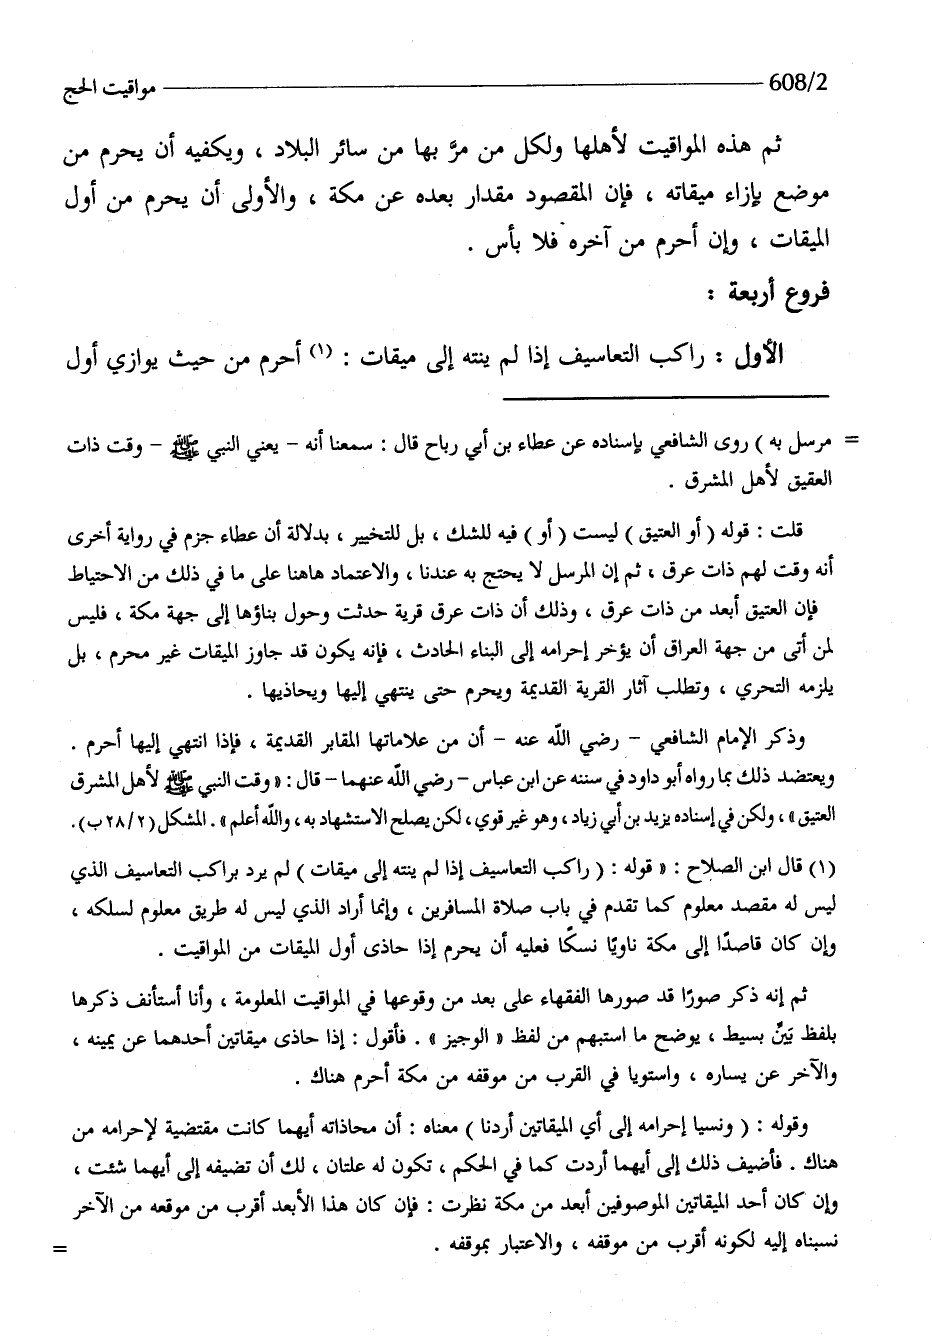 608/2 مواقيت الحج
ثم هذه المواقيت لأهلها ولكل من مرَّ بها من سائر البلاد ، ويكفيه أن يحرم من
موضع بإزاء ميقاته ، فإن المقصود مقدار بعده عن مكة ، والأولى أن يحرم من أول
الميقات ، وإن أحرم من آخره فلا بأس .
فروع أربعة :
الأول : راكب التعاسيف إذا لم ينته إلى ميقات : (١) أحرم من حيث يوازي أول
= مرسل به ) روى الشافعي بإسناده عن عطاء بن أبي رباح قال : سمعنا أنه – يعني النبي ﷺ – وقت ذات
العقيق لأهل المشرق .
قلت : قوله ( أو العتيق ) ليست ( أو ) فيه للشك ، بل للتخيير ، بدلالة أن عطاء جزم في رواية أخرى
أنه وقت لهم ذات عرق ، ثم إن المرسل لا يحتج به عندنا ، والاعتماد هاهنا على ما في ذلك من الاحتياط
فإن العتيق أبعد من ذات عرق ، وذلك أن ذات عرق قرية حدثت وحول بناؤها إلى جهة مكة ، فليس
لمن أتى من جهة العراق أن يؤخر إحرامه إلى البناء الحادث ، فإنه يكون قد جاوز الميقات غير محرم ، بل
يلزمه التحري ، وتطلب آثار القرية القديمة ويحرم حتى ينتهي إليها ويحاذيها .
وذكر الإمام الشافعي – رضي اللّه عنه – أن من علاماتها المقابر القديمة ، فإذا انتهي إليها أحرم .
ويعتضد ذلك بما رواه أبو داود في سننه عن ابن عباس – رضي اللّه عنهما – قال : « وقت النبي ﷺ لأهل المشرق
العتيق » ، ولكن في إسناده يزيد بن أبي زياد ، وهو غير قوي ، لكن يصلح الاستشهاد به ، واللّه أعلم » . المشكل (٢٨/٢ب) .
(١) قال ابن الصلاح : « قوله : ( راكب التعاسيف إذا لم ينته إلى ميقات ) لم يرد براكب التعاسيف الذي
ليس له مقصد معلوم كما تقدم في باب صلاة المسافرين ، وإنما أراد الذي ليس له طريق معلوم لسلكه ،
وإن كان قاصدًا إلى مكة ناويًا نسكًا فعليه أن يحرم إذا حاذى أول الميقات من المواقيت .
ثم إنه ذكر صورًا قد صورها الفقهاء على بعد من وقوعها في المواقيت المعلومة ، وأنا أستأنف ذكرها
بلفظ بَيِّن بسيط ، يوضح ما استبهم من لفظ « الوجيز » . فأقول : إذا حاذى ميقاتين أحدهما عن يمينه ،
والآخر عن يساره ، واستويا في القرب من موقفه من مكة أحرم هناك .
وقوله : ( ونسيا إحرامه إلى أي الميقاتين أردنا ) معناه : أن محاذاته أيهما كانت مقتضية لإحرامه من
هناك . فأضيف ذلك إلى أيهما أردت كما في الحكم ، تكون له علتان ، لك أن تضيفه إلى أيهما شئت ،
وإن كان أحد الميقاتين الموصوفين أبعد من مكة نظرت : فإن كان هذا الأبعد أقرب من موقعه من الآخر
نسبناه إليه لكونه أقرب من موقفه ، والاعتبار بموقفه . =